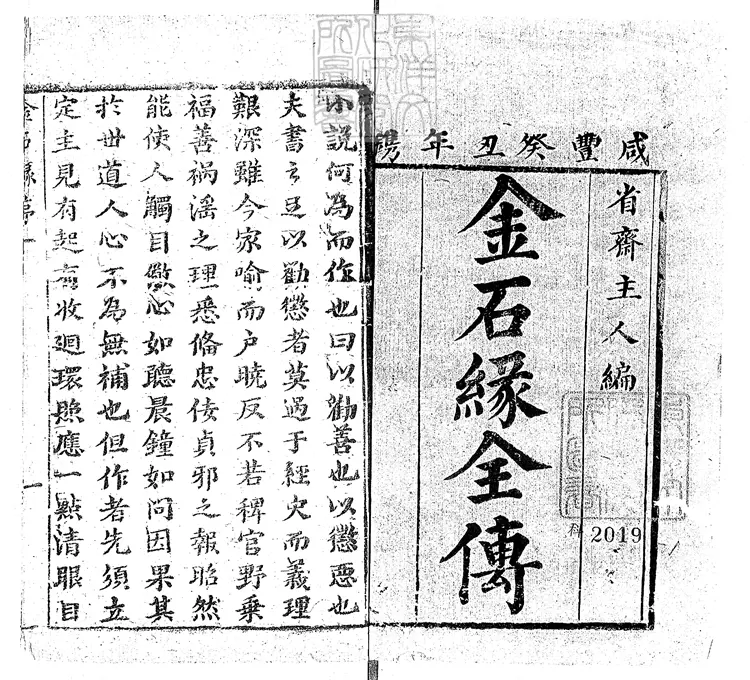 咸豐癸丑年鐫
省齋主人編
金石緣全傳
科
2019
小說何為而作也曰以勸善也以懲惡也
夫書之足以勸懲者莫過于經史而義理
艱深雖令家喻而户曉反不若稗官野乗
福善禍滛之理悉偹忠佞貞邪之報昭然
能使人觸目儆心如聽晨鐘如聞因果其
於世道人心不為無補也但作者先須立
定主見有起有收廻環照應一點清眼目
金石緣序 一